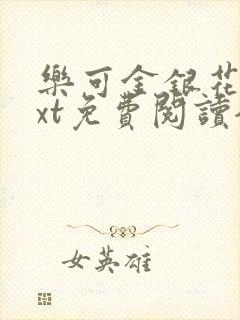 樂可金銀花
xt免費閱讀
女英雄